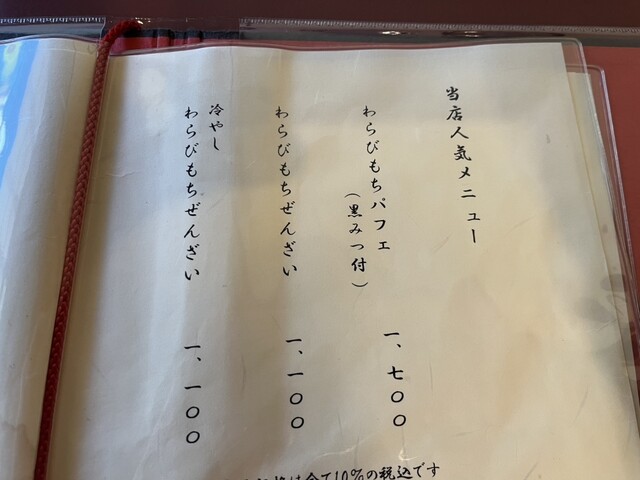 当店人気メニュー
わらびもちパフェ
（黒みつ付）
一、七〇〇
わらびもちぜんざい
一、一〇〇
冷やし
わらびもちぜんざい
一、一〇〇
全て10%の税込です